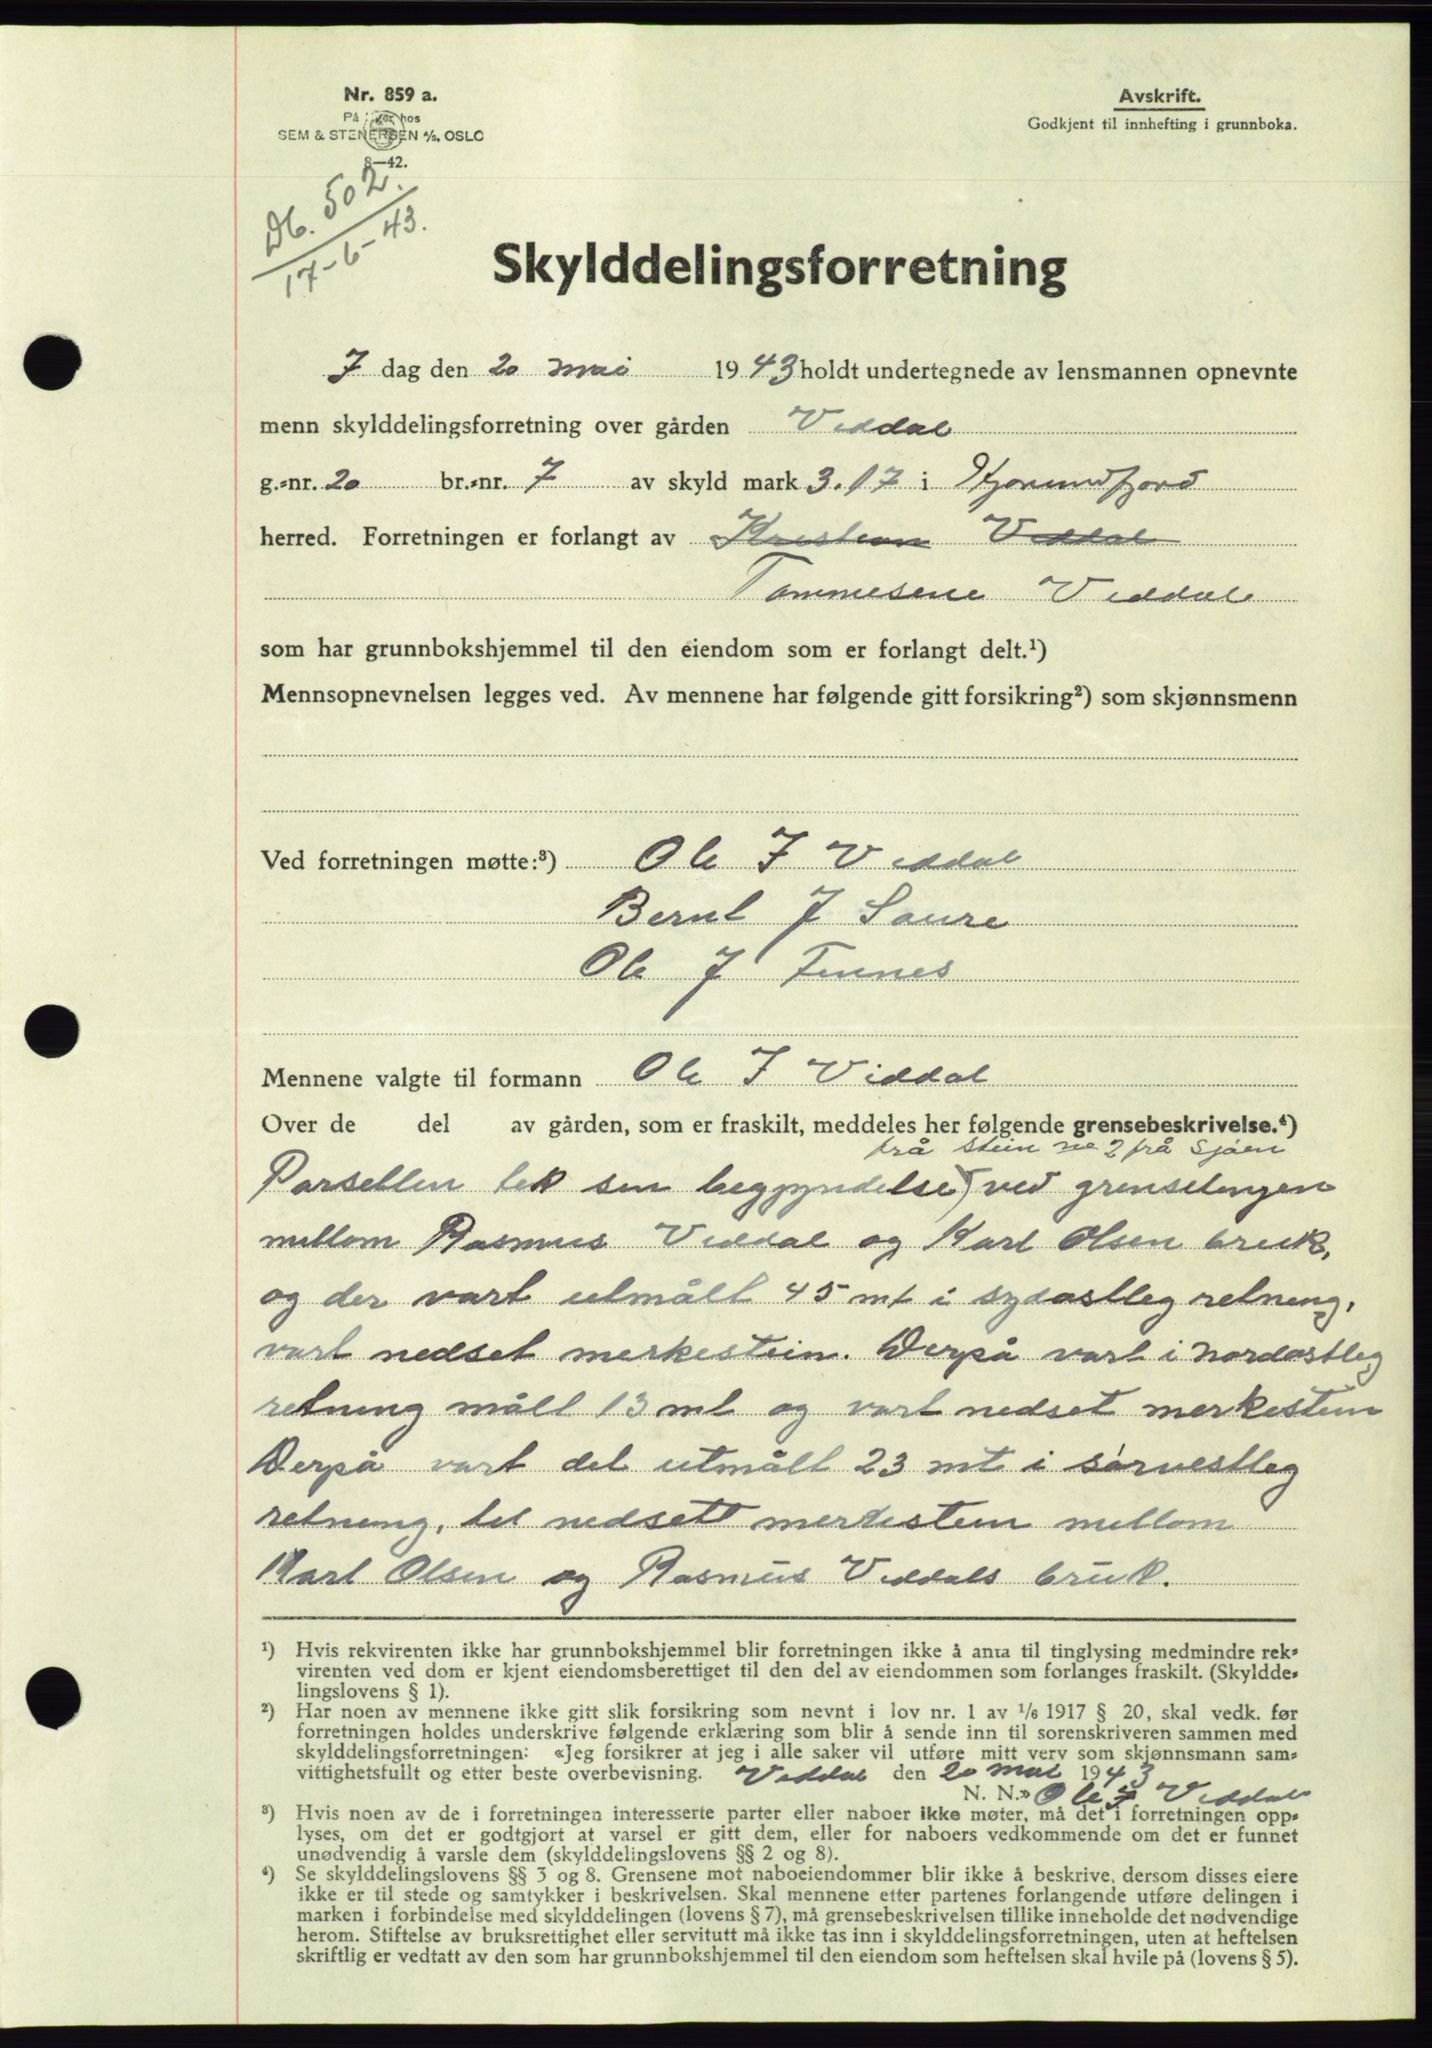 Nr. 859 a.
På lager hos
SEM & STENERSEN A/S, OSLO
8—42.
Avskrift.
Godkjent til innhefting i grunnboka.
Db. 502.
17-6-43.
Skylddelingsforretning
I dag den 20 mai 1943 holdt undertegnede av lensmannen opnevnte
menn skylddelingsforretning over gården Viddal
g.-nr. 20 br.-nr. 7 av skyld mark 3.17 i Hjørundfjord
herred. Forretningen er forlangt av Kristian Viddal
Tommesine Viddal
som har grunnbokshjemmel til den eiendom som er forlangt delt.¹)
Mennsopnevnelsen legges ved. Av mennene har følgende gitt forsikring²) som skjønnsmenn
Ved forretningen møtte:³) Ole J Viddal
Bernt J Saure
Ole J Finnes
Mennene valgte til formann Ole J Viddal
Over de del av gården, som er fraskilt, meddeles her følgende grensebeskrivelse.⁴)
frå stein no 2 frå sjøen
Parsellen tek sin begynndelse ved grenselinjen
millom Rasmus Viddal og Karl Olsen bruk,
og der vart utmålt 45 mt i sydostleg retning,
vart nedset merkestein. Derpå vart i nordostleg
retning målt 13 mt og vart nedset merkestein
Derpå vart det utmålt 23 mt i sørvestleg
retning, til nedsett merkestein millom
Karl Olsen og Rasmus Viddals bruk.
¹) Hvis rekvirenten ikke har grunnbokshjemmel blir forretningen ikke å anta til tinglysing medmindre rek-
virenten ved dom er kjent eiendomsberettiget til den del av eiendommen som forlanges fraskilt. (Skyldde-
lingslovens § 1).
²) Har noen av mennene ikke gitt slik forsikring som nevnt i lov nr. 1 av 1/6 1917 § 20, skal vedk. før
forretningen holdes underskrive følgende erklæring som blir å sende inn til sorenskriveren sammen med
skylddelingsforretningen: «Jeg forsikrer at jeg i alle saker vil utføre mitt verv som skjønnsmann sam-
vittighetsfullt og etter beste overbevisning. Viddal den 20 mai 1943
N. N.» Ole J Viddal
³) Hvis noen av de i forretningen interesserte parter eller naboer ikke møter, må det i forretningen opp-
lyses, om det er godtgjort at varsel er gitt dem, eller for naboers vedkommende om det er funnet
unødvendig å varsle dem (skylddelingslovens §§ 2 og 8).
⁴) Se skylddelingslovens §§ 3 og 8. Grensene mot naboeiendommer blir ikke å beskrive, dersom disses eiere
ikke er til stede og samtykker i beskrivelsen. Skal mennene etter partenes forlangende utføre delingen i
marken i forbindelse med skylddelingen (lovens § 7), må grensebeskrivelsen tillike inneholde det nødvendige
herom. Stiftelse av bruksrettighet eller servitutt må ikke tas inn i skylddelingsforretningen, uten at heftelsen
skriftlig er vedtatt av den som har grunnbokshjemmel til den eiendom som heftelsen skal hvile på (lovens § 5).